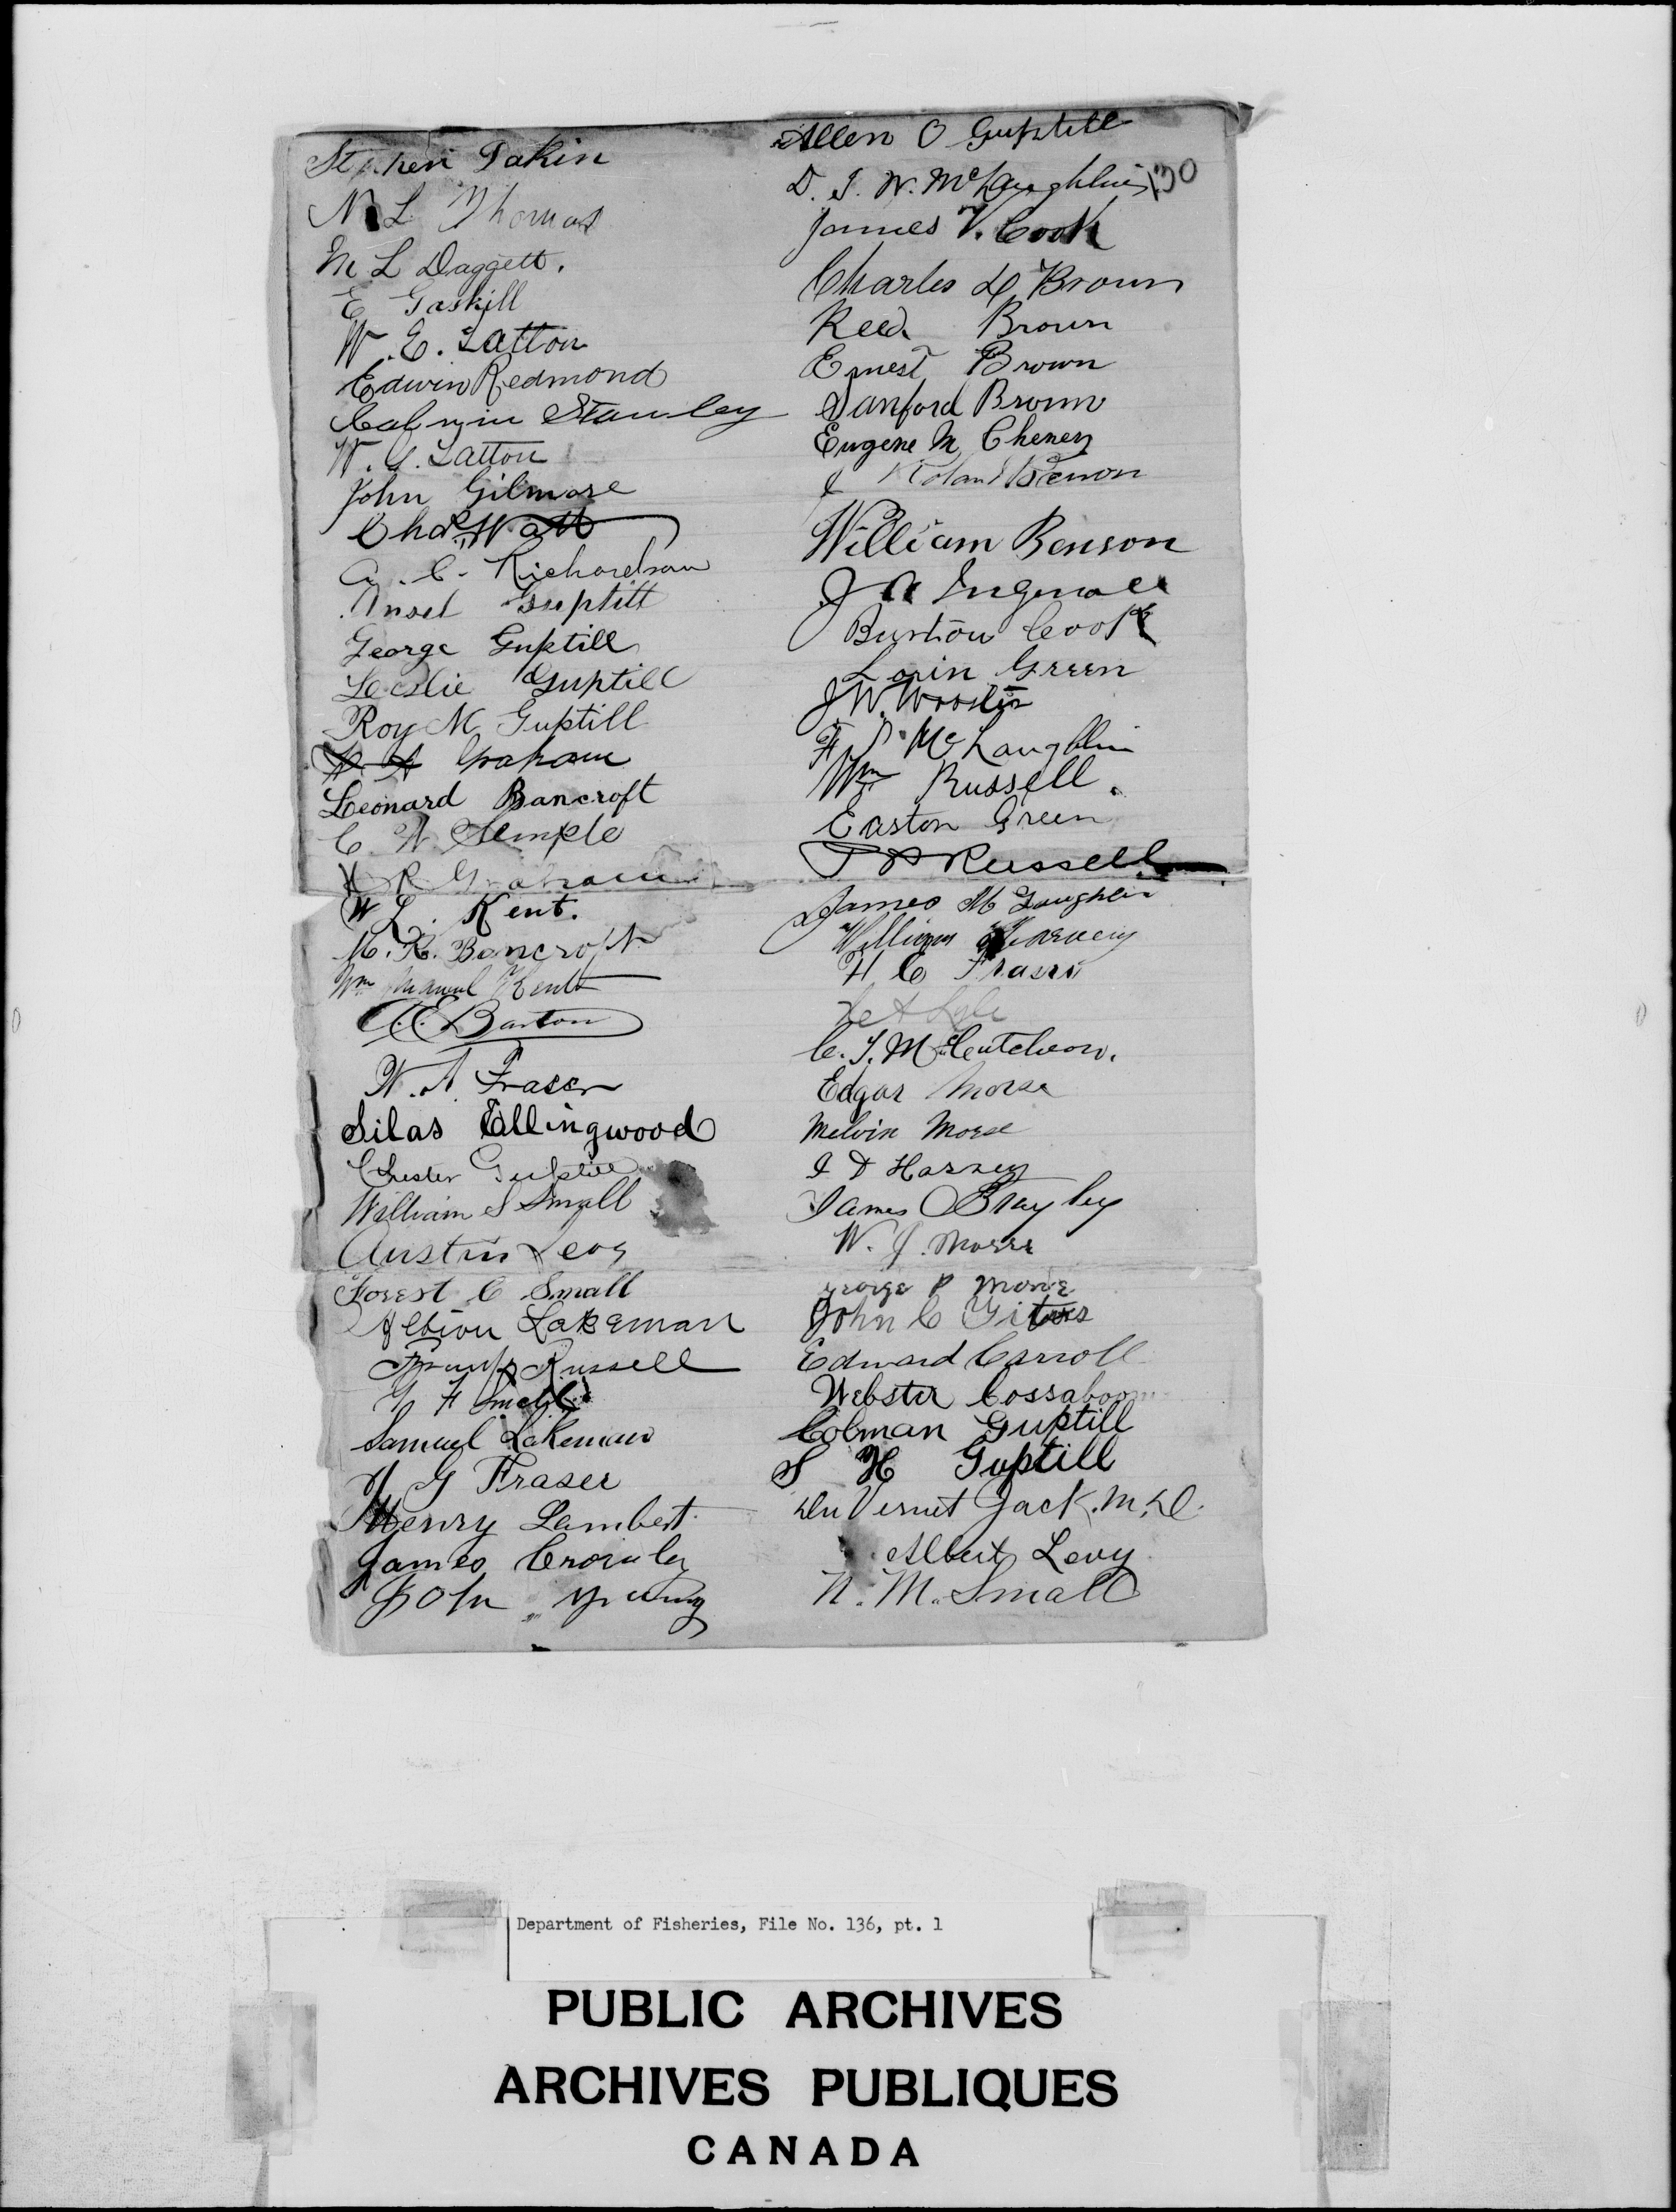 Stephen Dakin
N L Thomas
M L Daggett.
E Gaskill
W. E. Tatton
Edwin Redmond
Calvin Stanley
W. G. Tatton
John Gilmore
Chas. Watt
A. C. Richardson
Ansel Guptill
George Guptill
Leslie Guptill
Roy M Guptill
A Graham
Leonard Bancroft
C. W Semple
R Graham
W L. Kent.
M. K. Bancroft
Wm Kent
C. E. Barton
W. A. Fraser
Silas Ellingwood
Chester Guptill
William S Small
Austin Levy
Forest C Small
Albion Lakeman
Frank Russell
F Small
Samuel Lakeman
G Fraser
Henry Lambert
James Cromley
John Young
Allen O Guptill
D. I. W. McLaughlin 130
James V. Cook
Charles L Brown
Reed Brown
Ernest Brown
Sanford Brown
Eugene M Cheney
Roland Benson
William Benson
J N Ingersoll
Burton Cook
Lorin Green
J W. Wooster
F. McLaughlin
Wm Russell.
Easton Green
Russell
James McLaughlin
William Harvey
H C Fraser
Lyle
C. T. McCutcheon.
Edgar Morse
Melvin Morse
I D Harvey
James Brayley
W. J. Morse
George P Morse
John C Titus
Edward Carroll
Webster Cossaboom
Colman Guptill
S H Guptill
DuVernet Jack. M. D.
Albert Levy
N. M. Small
Department of Fisheries, File No. 136, pt. 1
PUBLIC ARCHIVES
ARCHIVES PUBLIQUES
CANADA